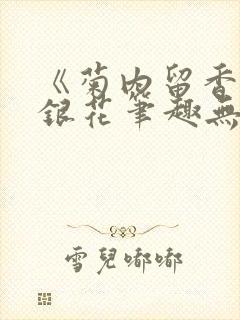 《菊内留香
銀花筆趣無
雪兒嘟嘟